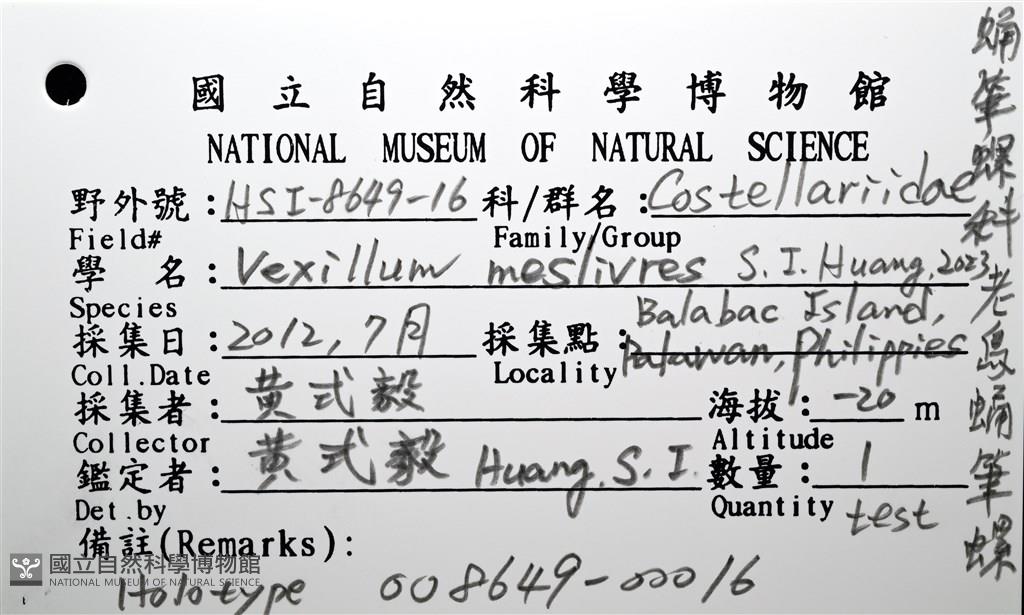 國立自然科學博物館
NATIONAL MUSEUM OF NATURAL SCIENCE
野外號：HSI-8649-16 科/群名：Costellariidae
Field# Family/Group
學 名：Vexillum meslivres S.I.Huang, 2023
Species
Balabac Island,
採集日：2012, 7月 採集點：Palawan, Philippies
Coll.Date Locality
採集者：黃式毅 海拔：-20 m
Collector Altitude
鑑定者：黃式毅 Huang, S.I. 數量：1
Det.by Quantity test
備註(Remarks)：
Holotype 008649-00016
蛹筆螺科老鳥蛹筆螺
國立自然科學博物館
NATIONAL MUSEUM OF NATURAL SCIENCE